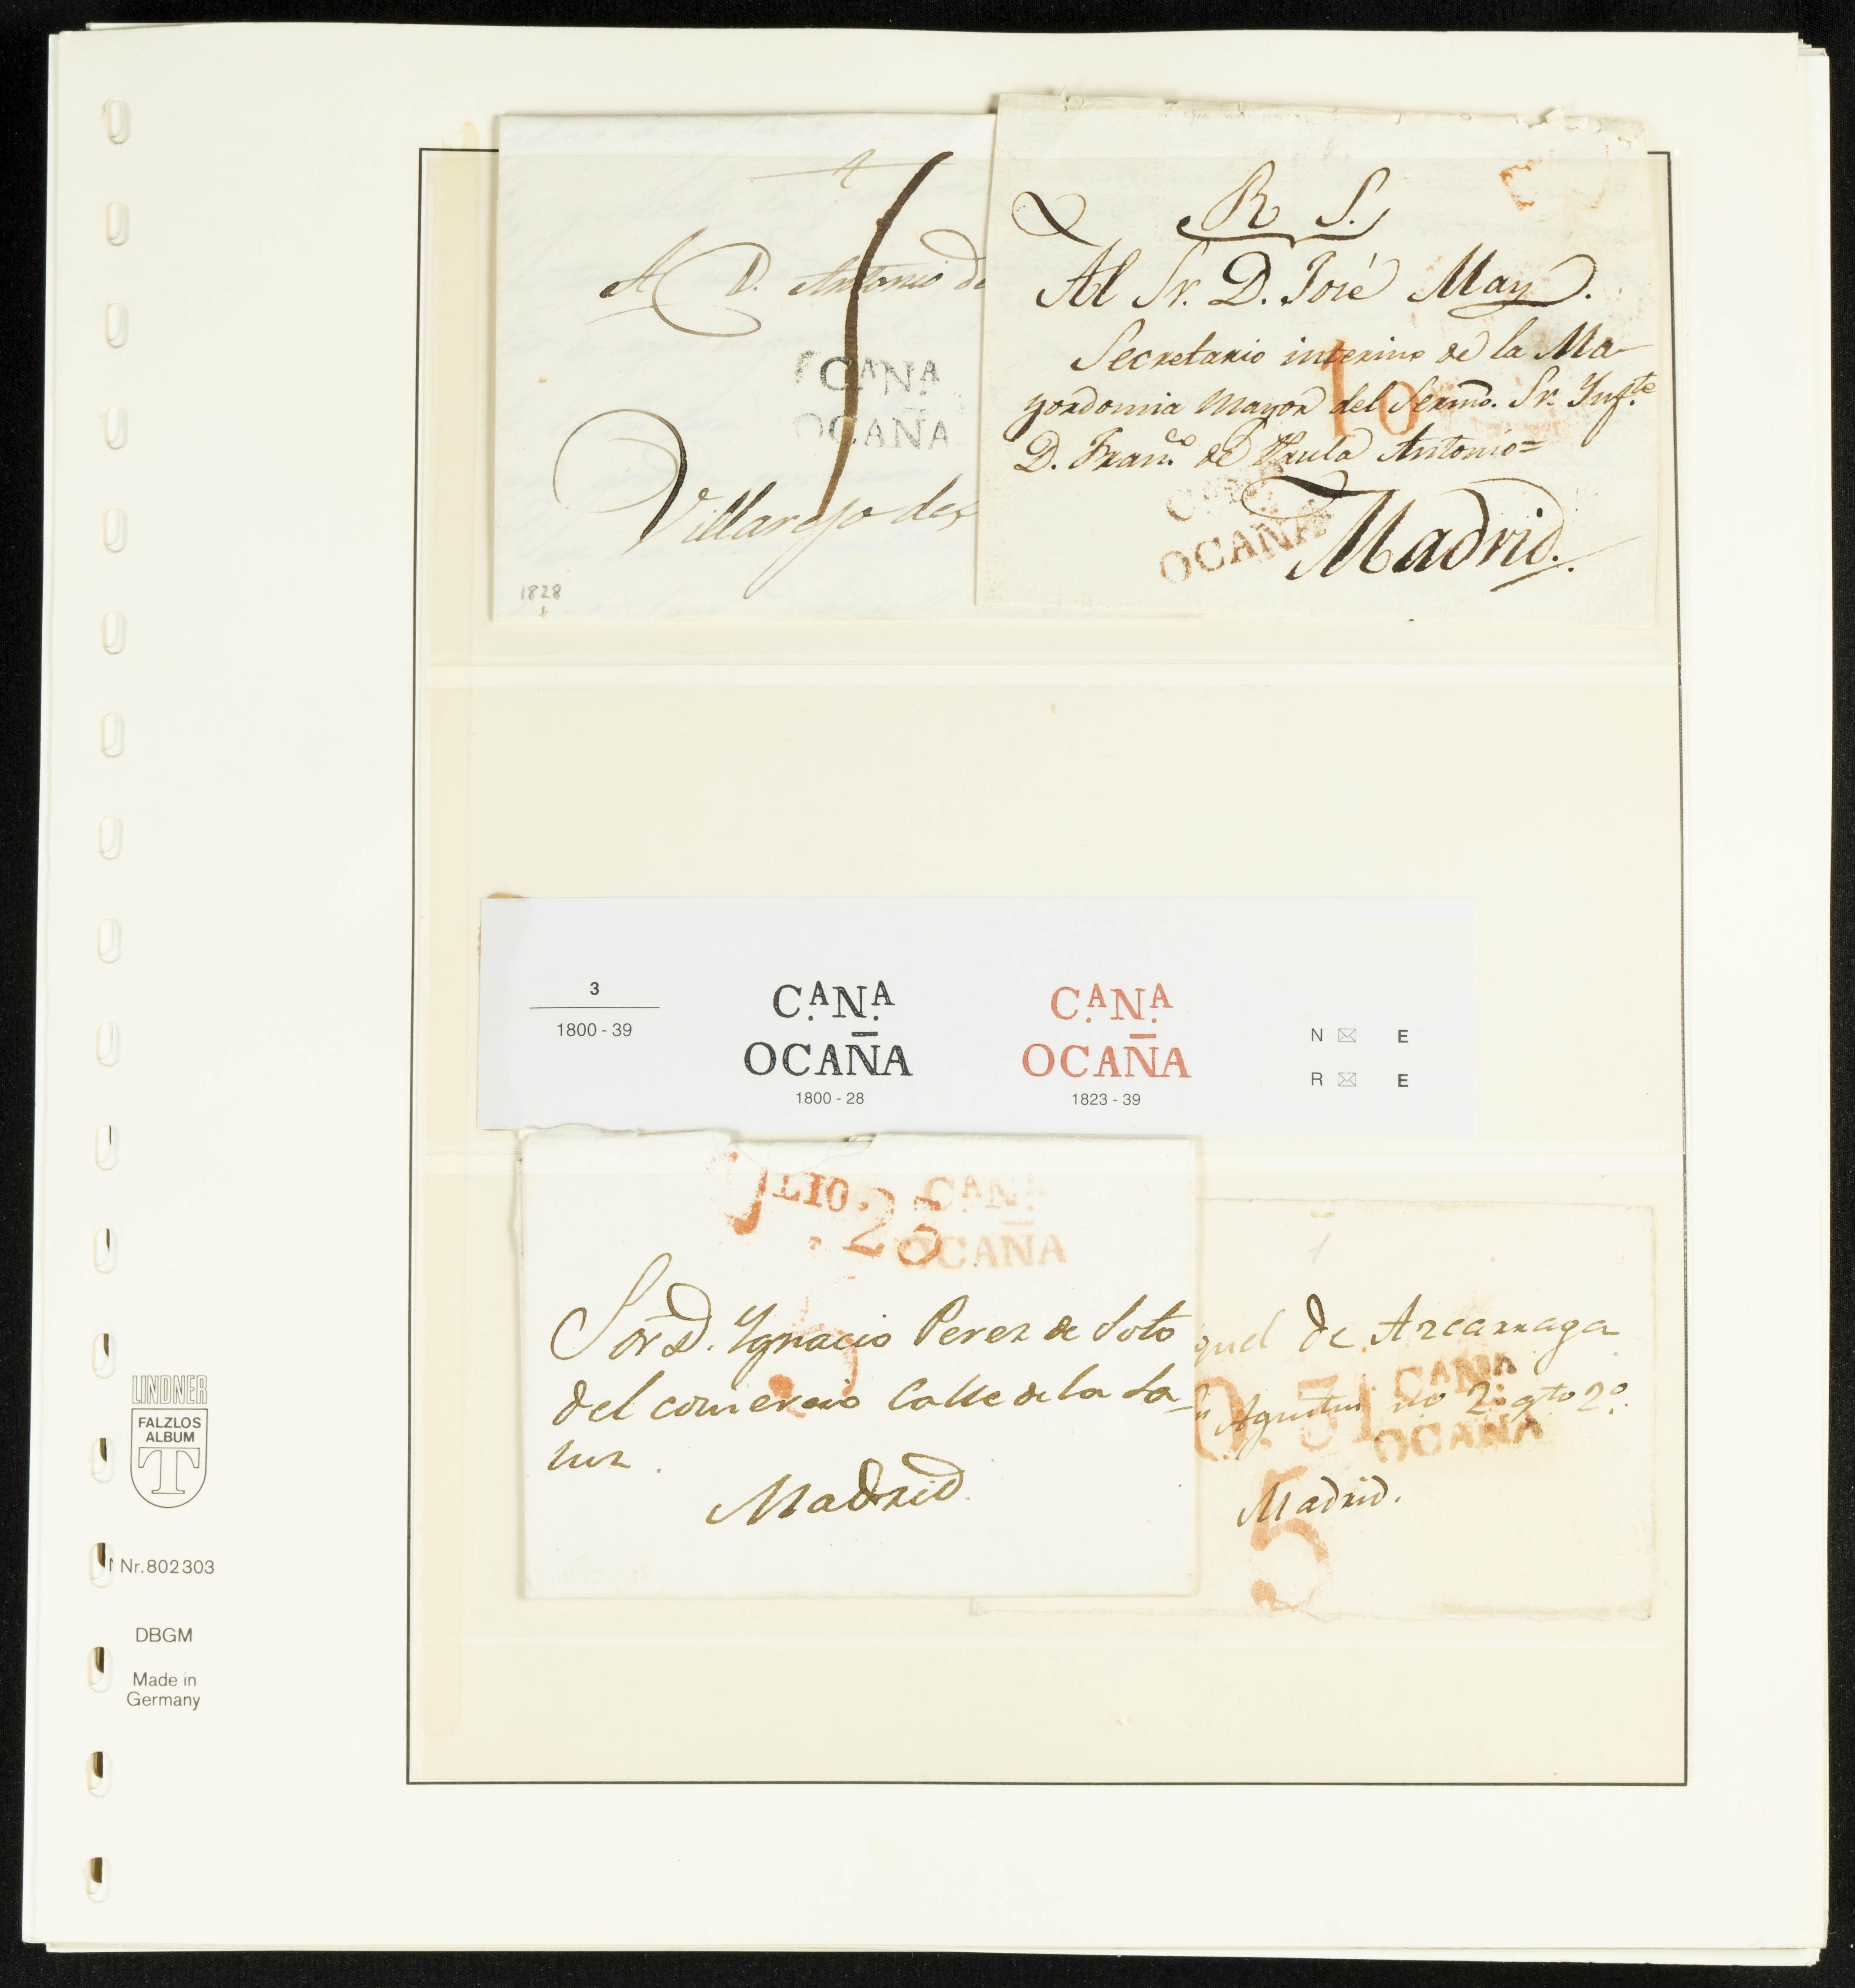 A D. Antonio de
CANA
OCAÑA
Villarejo de
1828
R S.
Al Sr. D. José May.
Secretario interino de la Ma-
yordomia Mayor del Sermo. Sr. Ynfte
D. Franco de Paula Antonio=
10
OCAÑA
Madrid.
3
1800 - 39
CANA
OCAÑA
1800 - 28
CANA
OCAÑA
1823 - 39
N E
R E
JLIO. 25
CANA
OCAÑA
Sor D. Ygnacio Perez de Soto
del comercio Calle de la Sa-
Madrid.
de Azcarraga
CANA
Agustin no 2 qto 2o.
OCAÑA
Madrid.
5
LINDNER
FALZLOS
ALBUM
T
Nr. 802303
DBGM
Made in
Germany